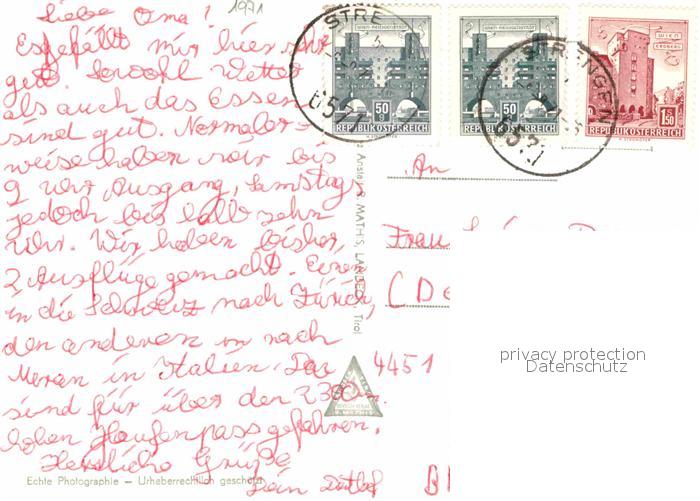 1971
Liebe Oma!
Es gefällt mir hier sehr
gut. Sowohl Wetter
als auch das Essen
sind gut. Normaler-
weise haben wir bis
9 Uhr Ausgang, Samstag
jedoch bis halb zehn
Uhr. Wir haben bisher
2 Ausflüge gemacht. Einen
in die Schweiz nach Zürich,
den anderen nach
Meran in Italien. Da
sind für über den 2300 m
hohen Jaufenpass gefahren.
Herzliche Grüße
Dein Detlef
Echte Photographie – Urheberrechtlich geschützt
STRENGEN
6571
WIEN-HEILIGENSTADT
50 g
REPUBLIK ÖSTERREICH
WIEN-HEILIGENSTADT
50 g
REPUBLIK ÖSTERREICH
STRENGEN
6571
WIEN
ERDBERG
1.50
REPUBLIK ÖSTERREICH
R. MATHIS, LANDECK, Tirol
An
Frau
(De
4451
B
privacy protection
Datenschutz